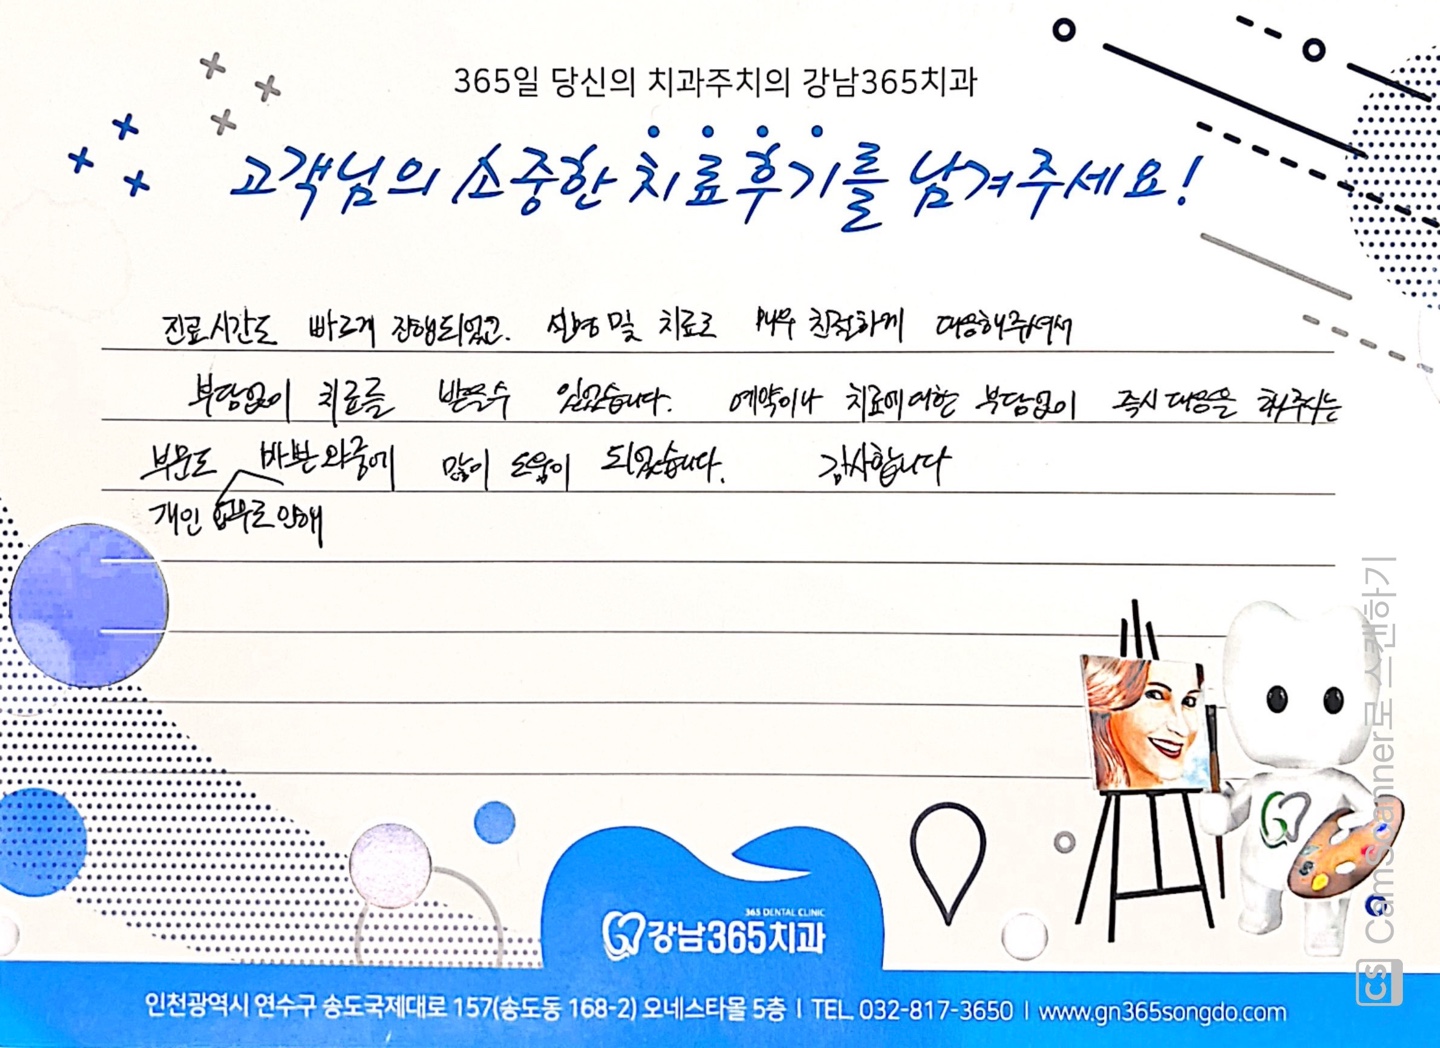 365일 당신의 치과주치의 강남365치과
고객님의 소중한 치료후기를 남겨주세요!
진료시간도 빠르게 진행되었고. 설명 및 치료도 매우 친절하게 대응해주셔서
부담없이 치료를 받을수 있었습니다. 예약이나 치료에 대한 부담없이 즉시 대응을 해주시는
부분도 바쁜 와중에 많이 도움이 되었습니다. 감사합니다
개인 업무로 인해
365 DENTAL CLINIC
강남365치과
인천광역시 연수구 송도국제대로 157(송도동 168-2) 오네스타몰 5층 | TEL 032-817-3650 | www.gn365songdo.com
CS CamScanner로 스캔하기